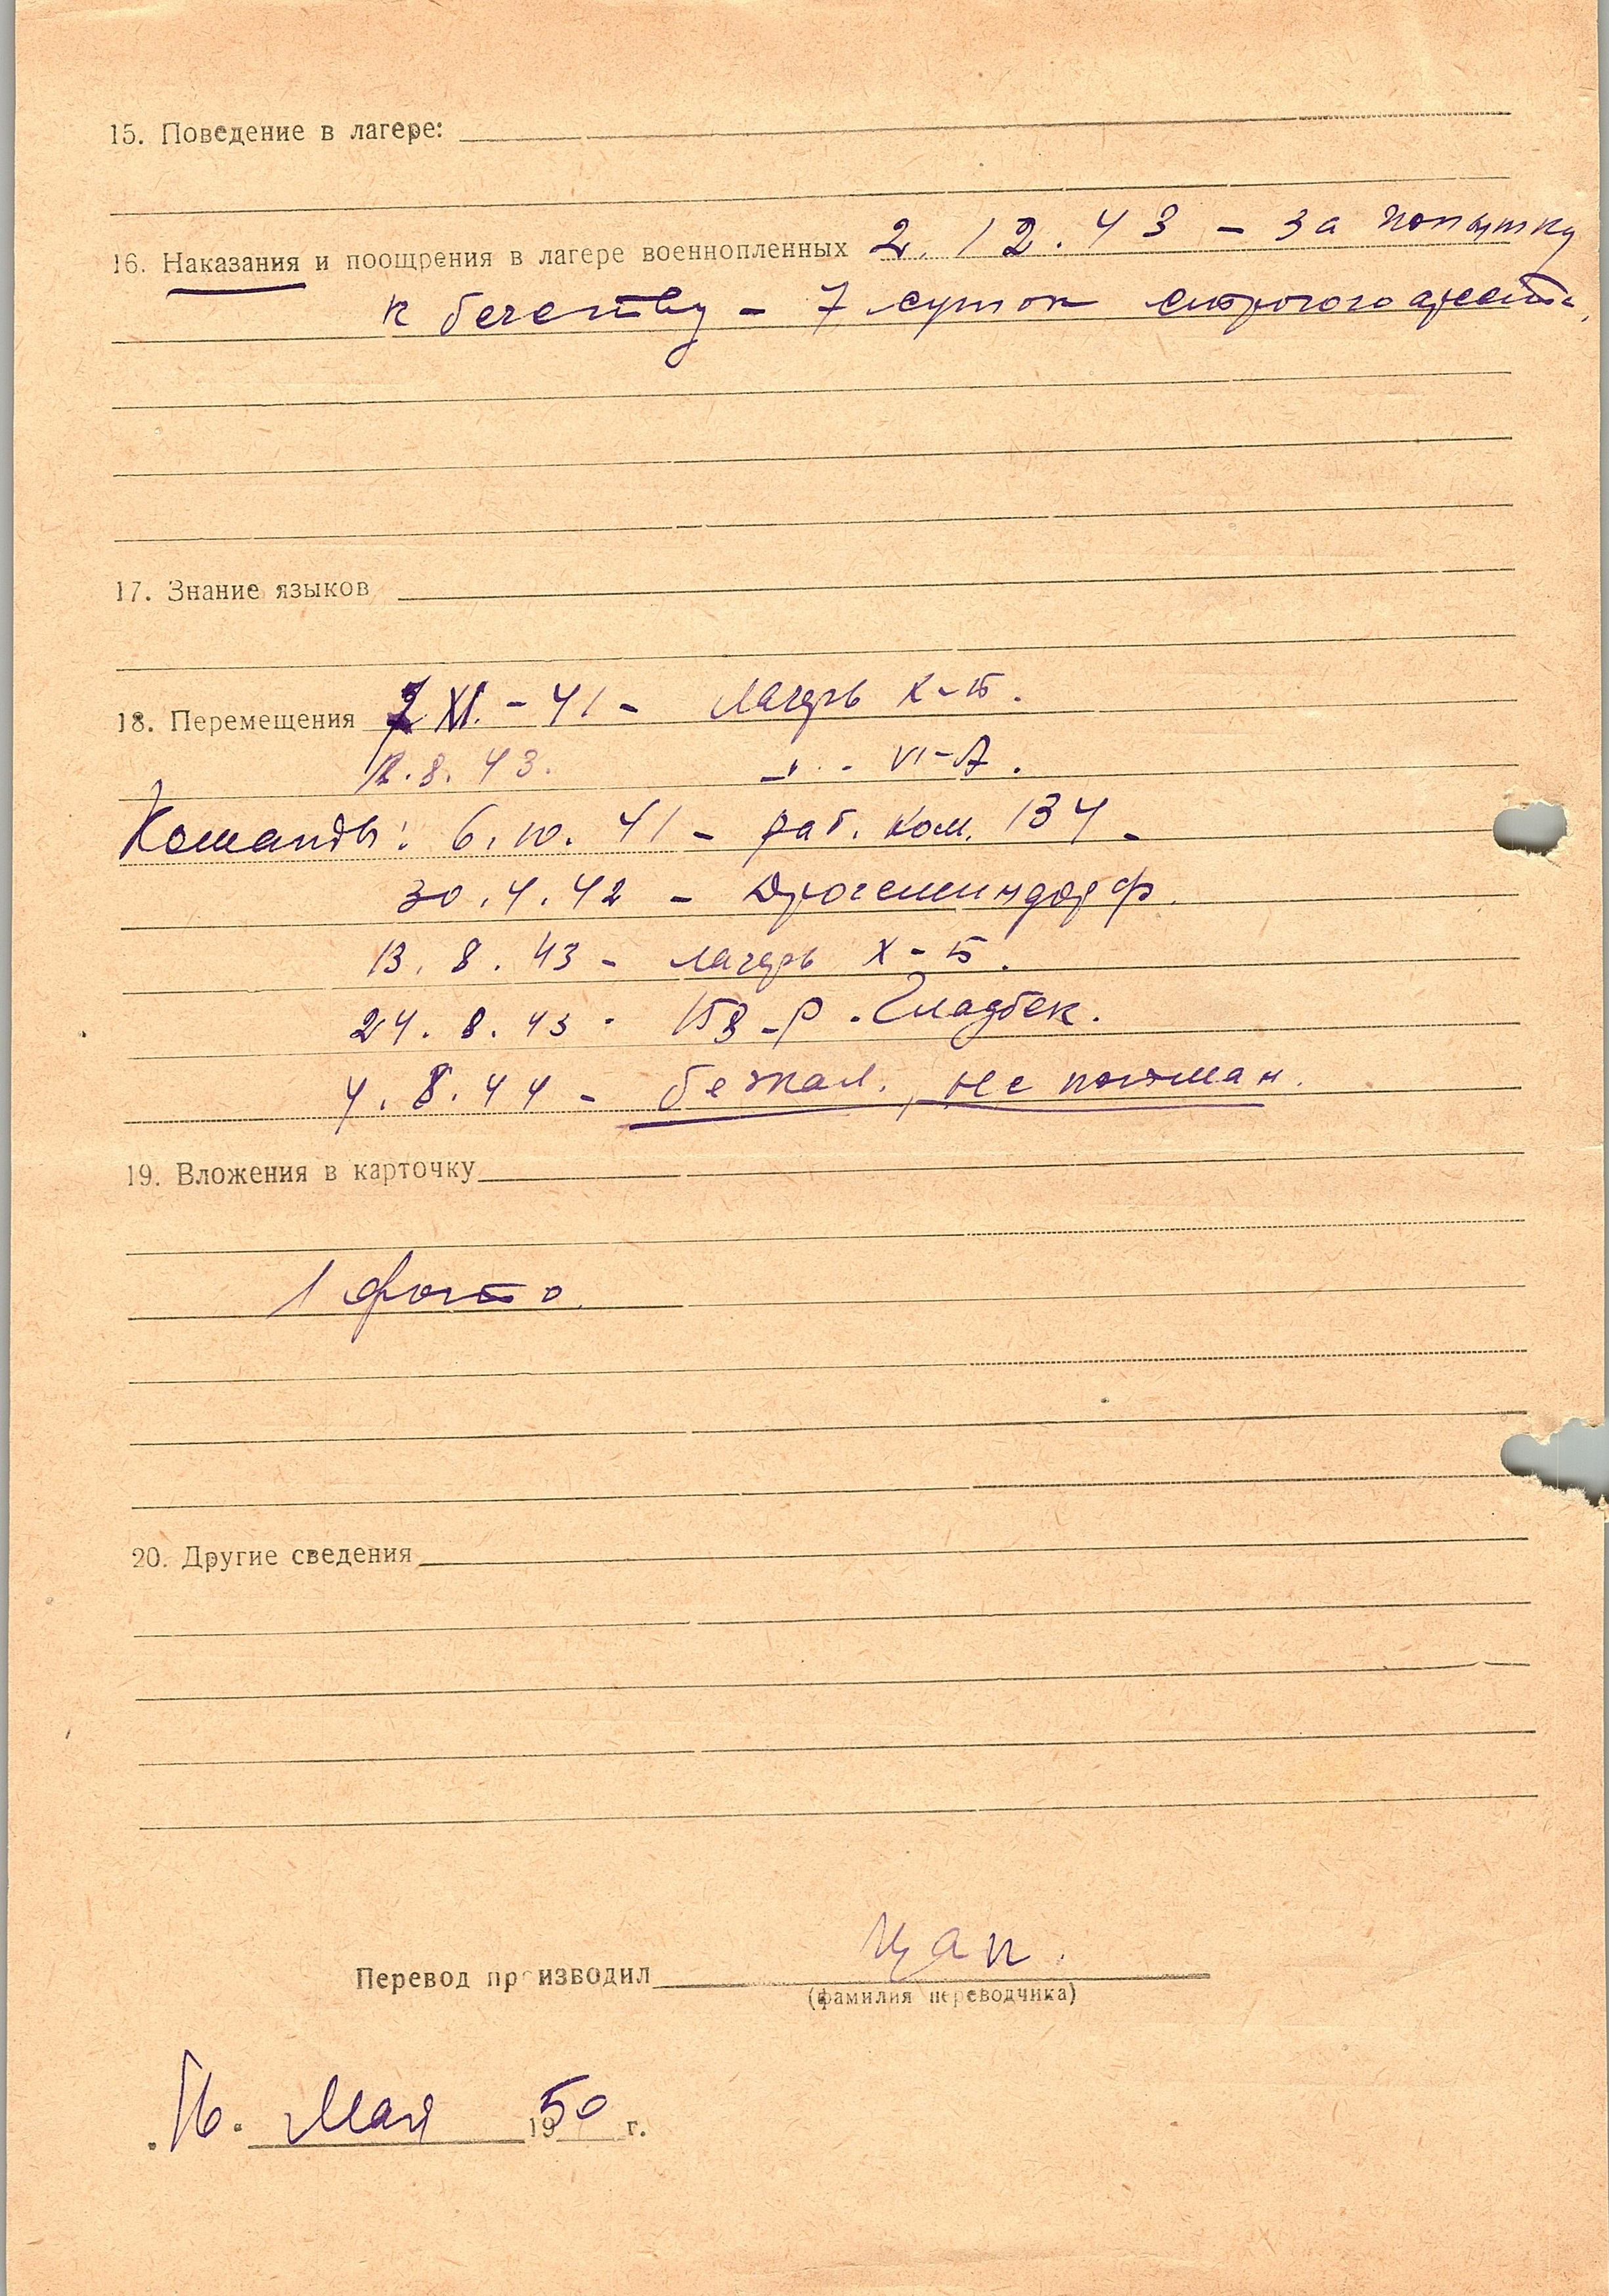 15. Поведение в лагере:
16. Наказания и поощрения в лагере военнопленных 2.12.43 – за попытку
к бегству – 7 суток строгого ареста.
17. Знание языков
18. Перемещения XI. – 41 – лагерь X-Б.
12.8.43. –"– VI-А.
Команды: 6.10.41 – раб. ком. 134 –
30.4.42 – Дрогеминдорф.
13.8.43 – лагерь X-Б.
24.8.43 - 158-Р. Гладбек.
4.8.44 – бежал, не пойман.
19. Вложения в карточку
1 фото.
20. Другие сведения
Перевод производил Цап.
(фамилия переводчика)
16. Мая 1950 г.